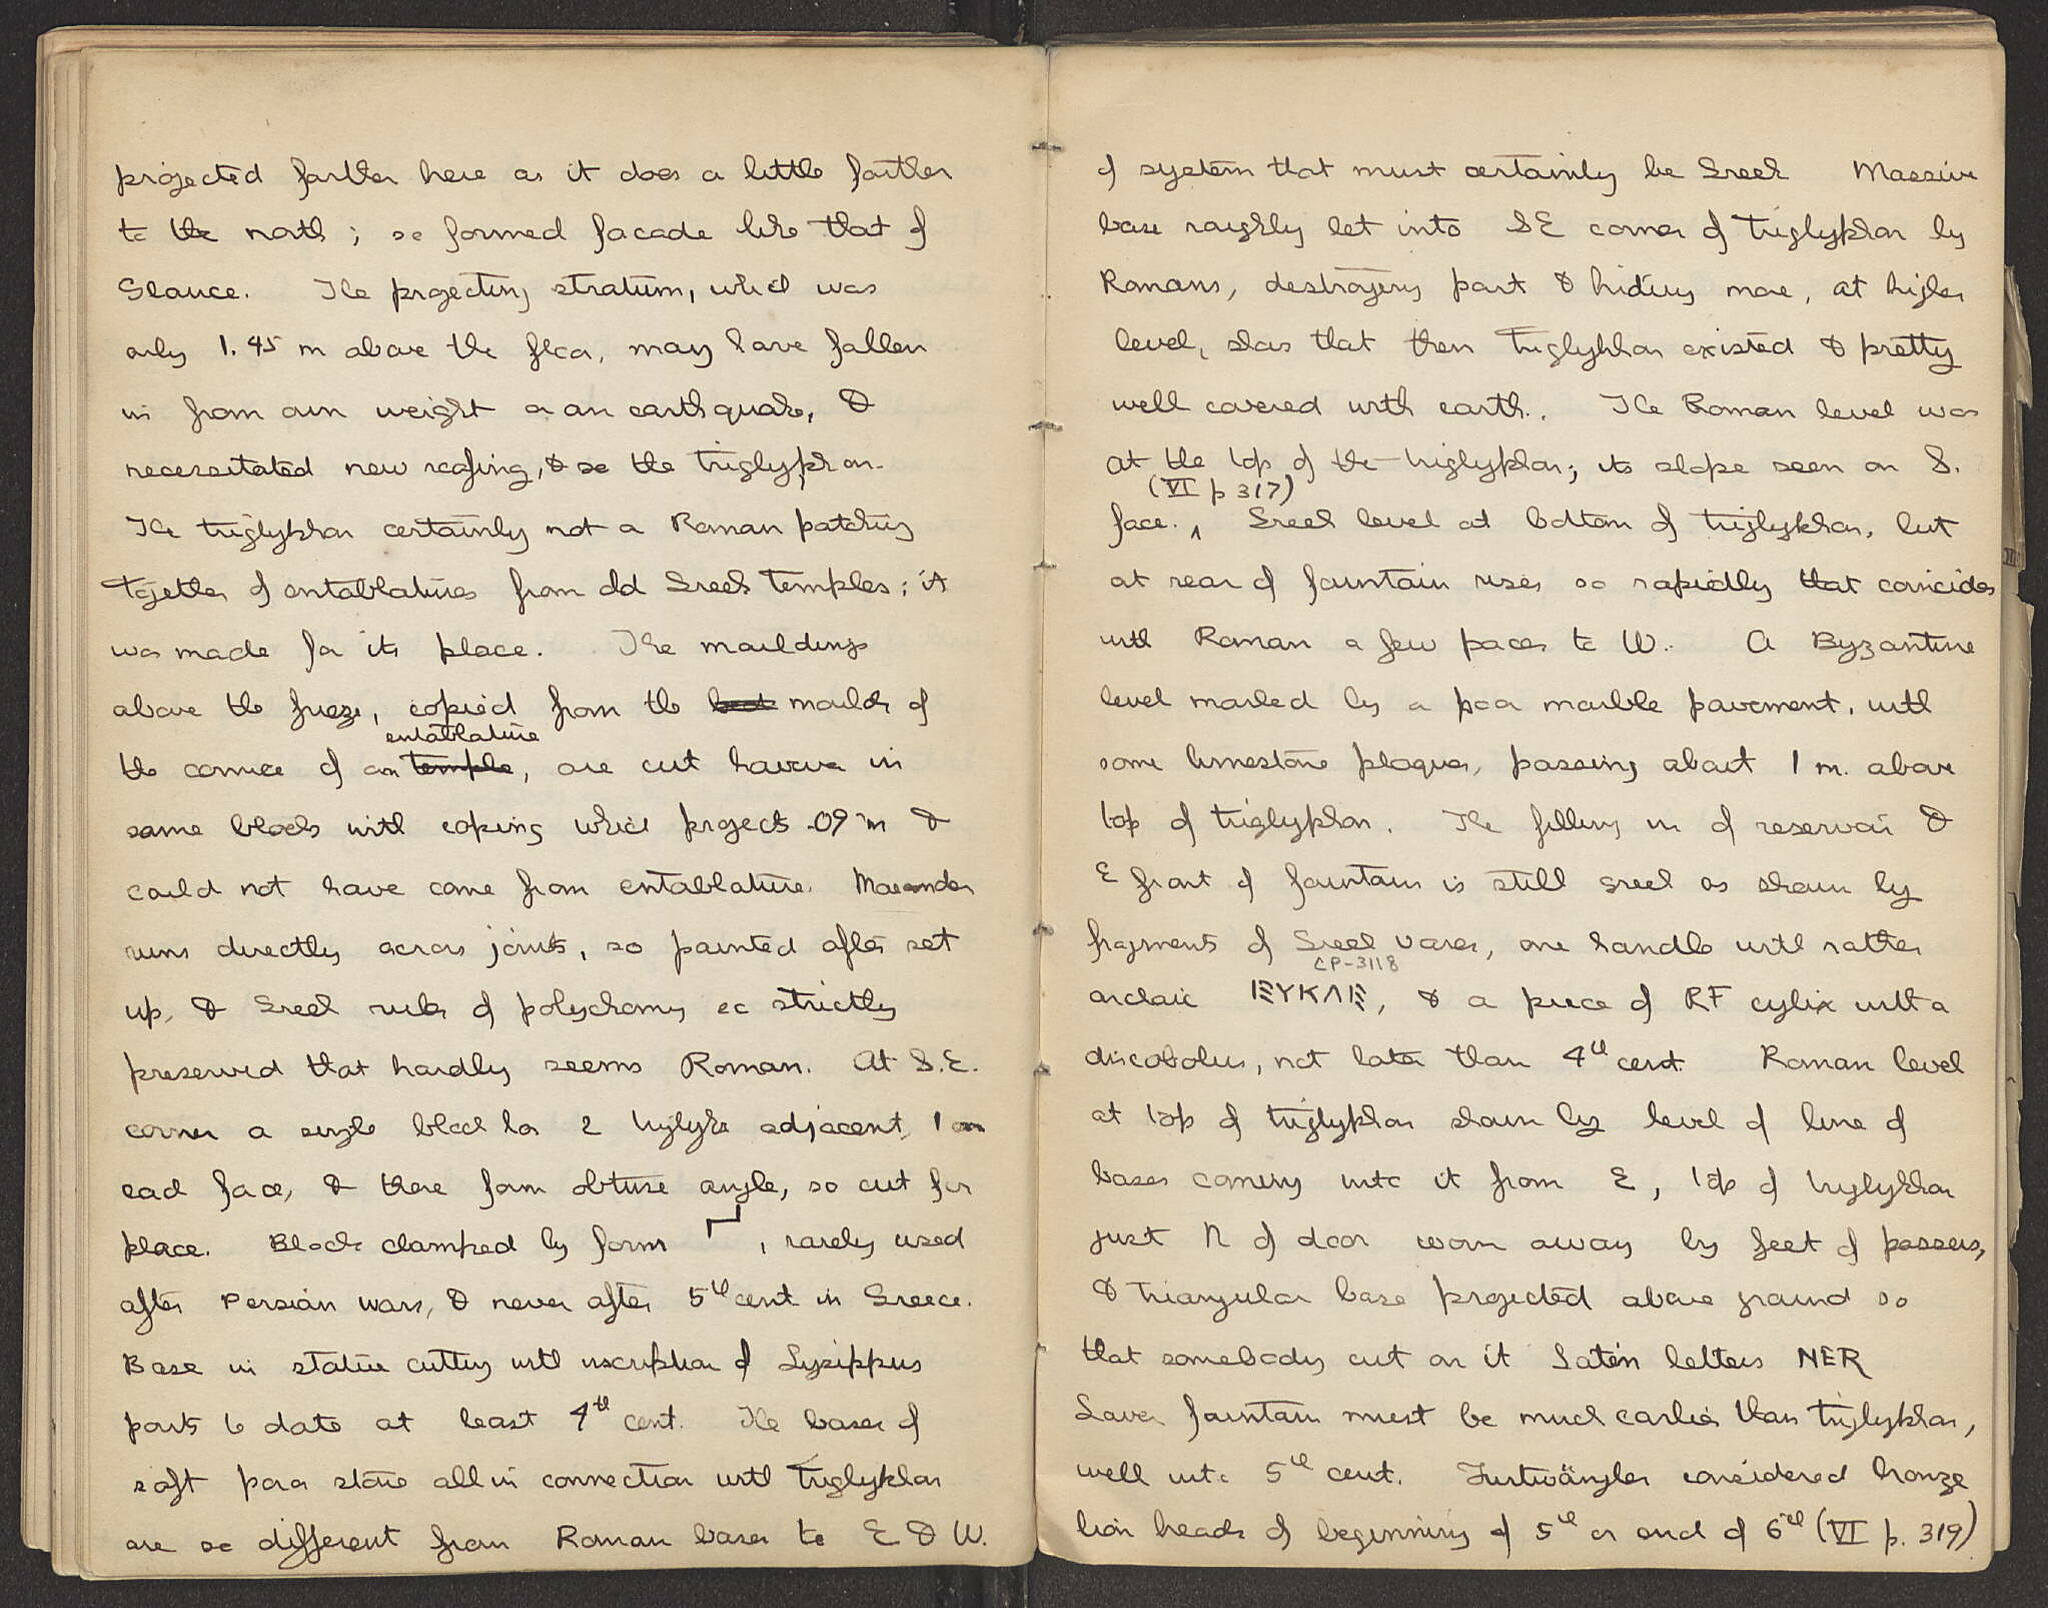 projected farther here as it does a little farther
to the north; so formed facade like that of
Glauce. The projecting stratum, which was
only 1.45 m above the floor, may have fallen
in from own weight or an earthquake, &
necessitated new roofing, & so the triglyphon.
The triglyphon certainly not a Roman patching
together of entablatures from old Greek temples; it
was made for its place. The mouldings
above the frieze, copied from the moulds of
entablature
the cornice of an temple, are cut however in
same blocks with coping which projects .09 m &
could not have come from entablature. Maeander
runs directly across joints, so painted after set
up, & Greek rules of polychromy so strictly
preserved that hardly seems Roman. At S.E.
corner a single block has 2 triglyphs adjacent, 1 on
each face, & these form obtuse angle, so cut for
place. Blocks clamped by form , rarely used
after Persian wars, & never after 5th cent in Greece.
Base in statue cutting with inscription of Lysippus
ports to date at least 4th cent. The bases of
soft poros stone all in connection with triglyphon
are so different from Roman bases to E & W.
of system that must certainly be Greek Massive
base roughly let into SE corner of triglyphon by
Romans, destroying part & hiding more, at higher
level, shows that then triglyphon existed & pretty
well covered with earth. The Roman level was
at the top of the triglyphon; its slope seen on S.
(VI p 317)
face. ^ Greek level at bottom of triglyphon, but
at rear of fountain rises so rapidly that coincides
with Roman a few paces to W. A Byzantine
level marked by a poor marble pavement, with
some limestone plaques, passing about 1 m. above
top of triglyphon. The filling in of reservoir &
E front of fountain is still Greek as shown by
fragments of Greek vases, one handle with rather
CP-3118
archaic ΕΥΚΛΕ, & a piece of RF cylix with a
discobolus, not later than 4th cent. Roman level
at top of triglyphon shown by level of line of
bases coming into it from E, top of triglyphon
just N of door worn away by feet of passers,
& triangular base projected above ground so
that somebody cut on it Latin letters NER
Lower fountain must be much earlier than triglyphon,
well into 5th cent. Furtwängler considered bronze
lion heads of beginning of 5th or end of 6th (VI p. 319)